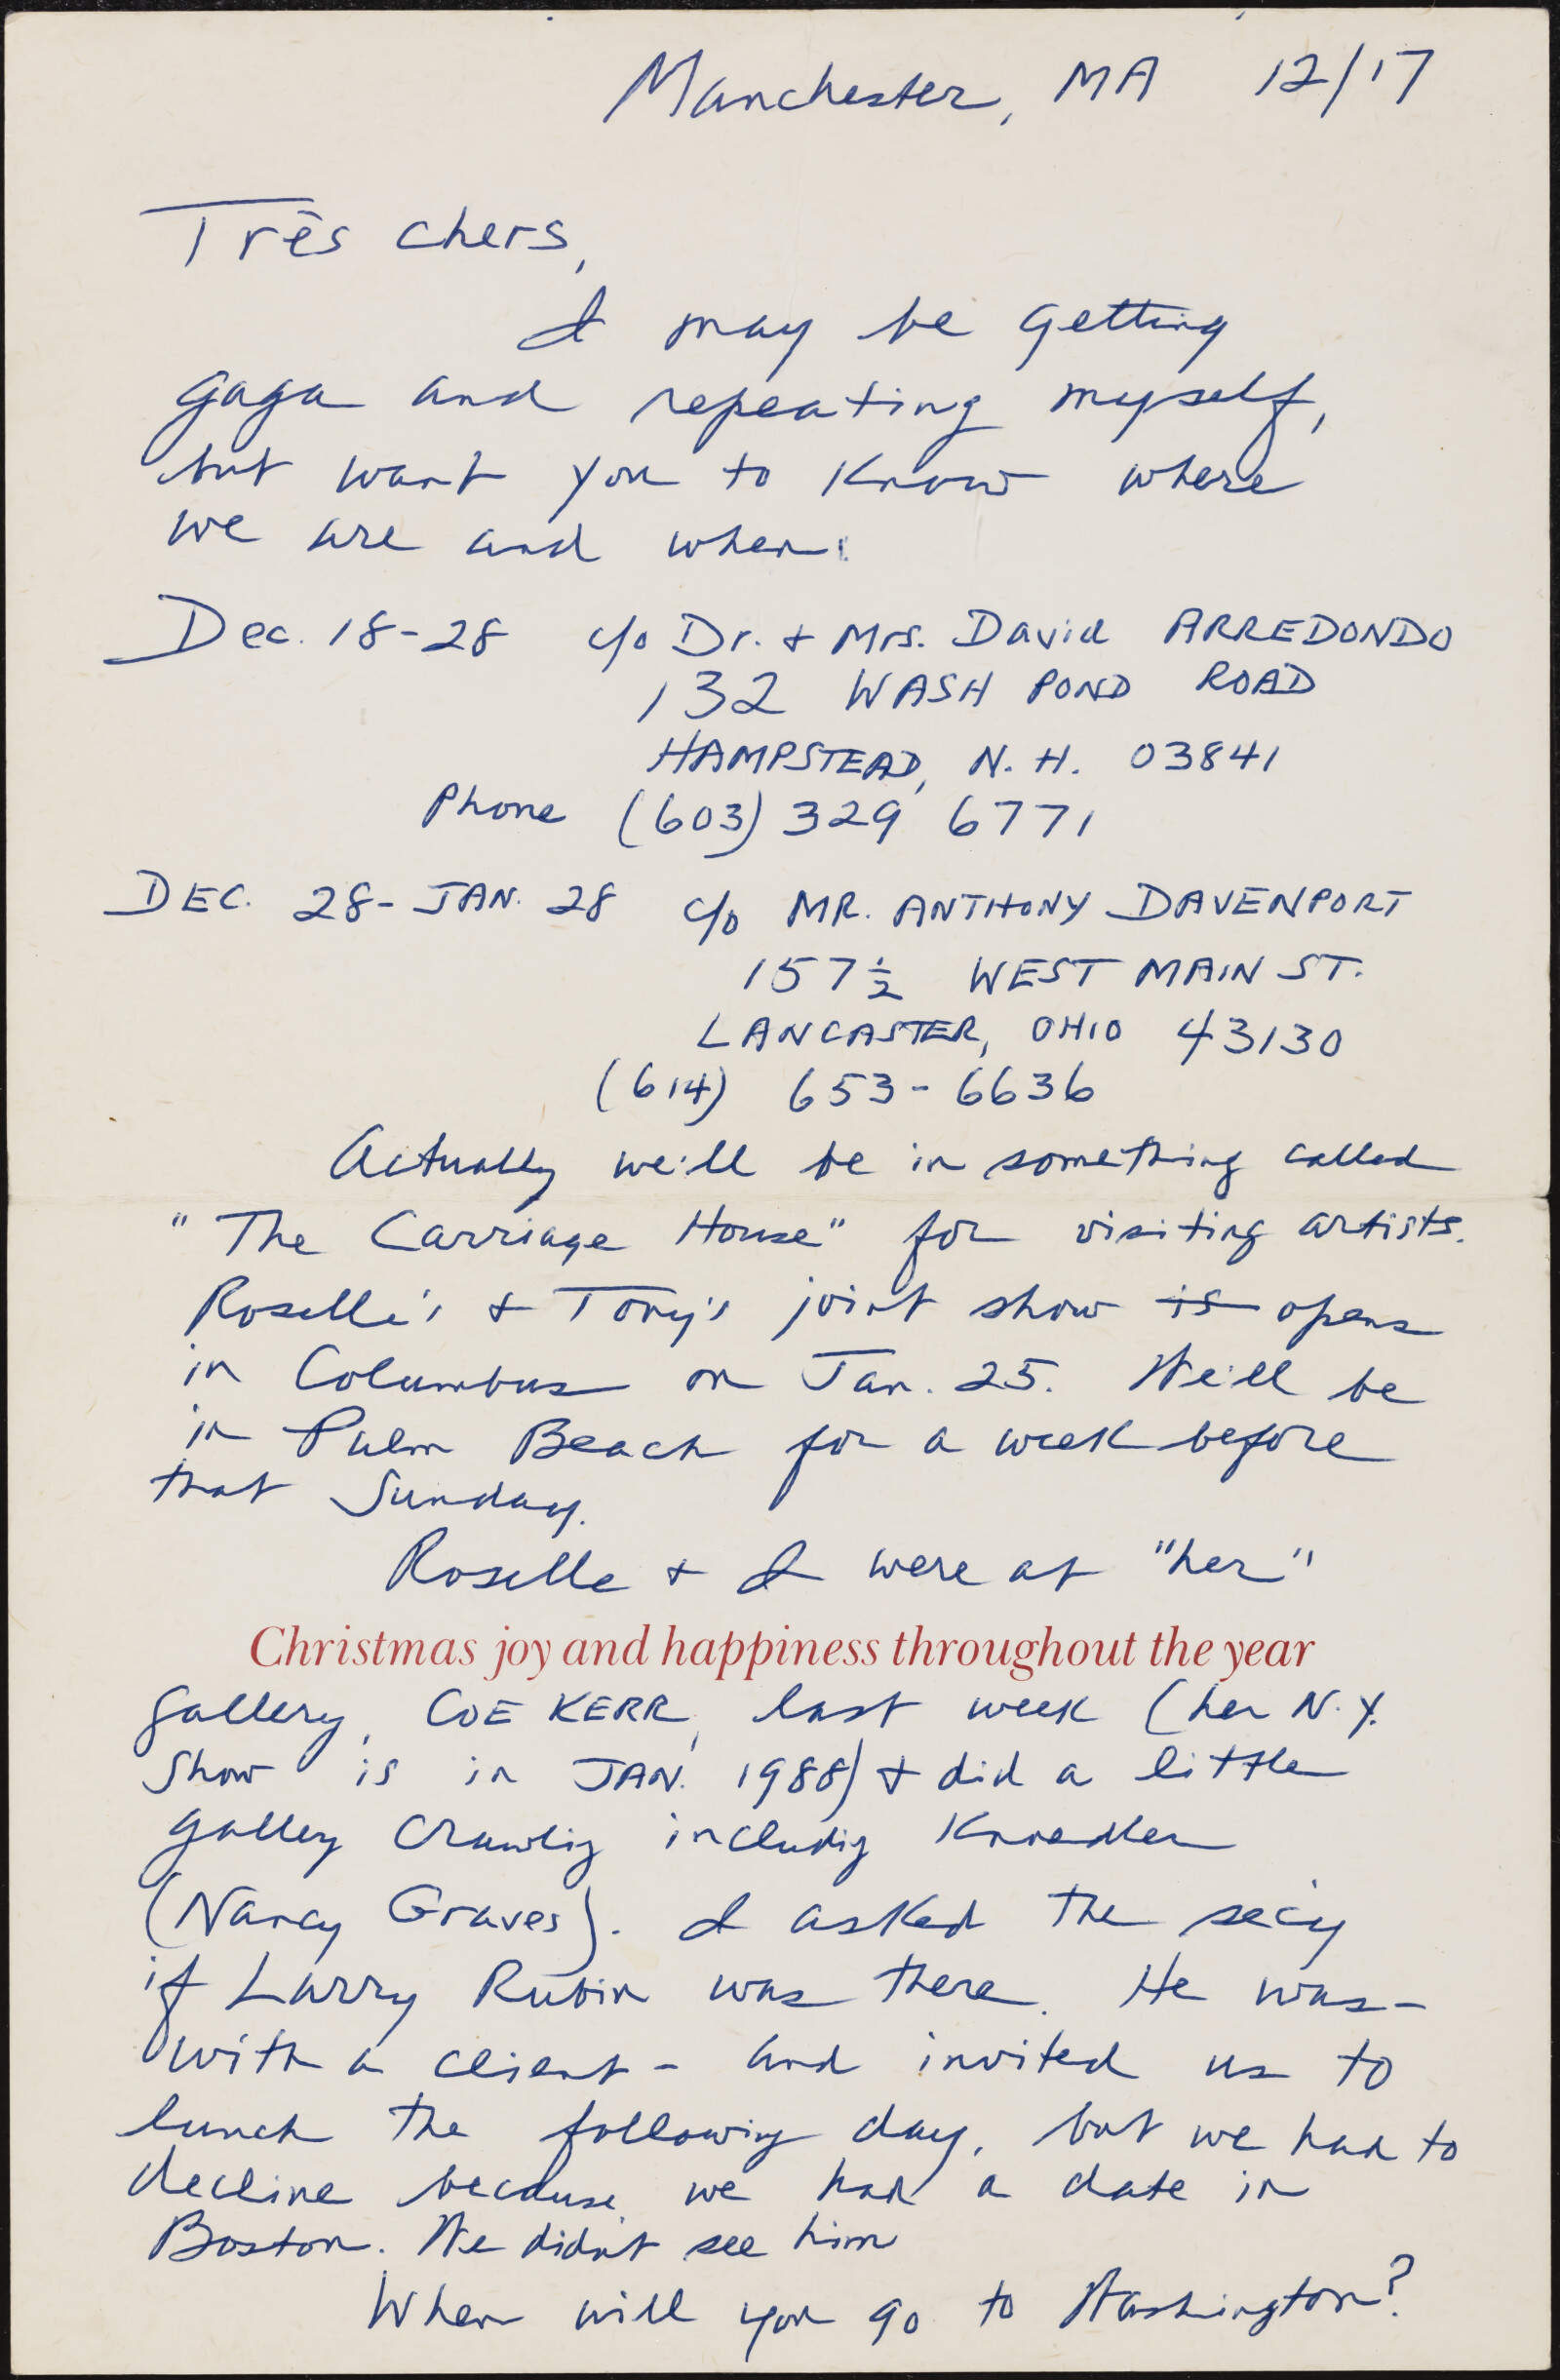 Manchester, MA 12/17
Très chers,
I may be getting
gaga and repeating myself,
but want you to know where
we are and when:
Dec. 18-28 c/o Dr. + Mrs. David ARREDONDO
132 WASH POND ROAD
HAMPSTEAD, N.H. 03841
Phone (603) 329 6771
DEC. 28-JAN. 28 c/o MR. ANTHONY DAVENPORT
157 1/2 WEST MAIN ST.
LANCASTER, OHIO 43130
(614) 653-6636
Actually we'll be in something called
"The Carriage House" for visiting artists.
Roselle's + Tony's joint show is opens
in Columbus on Jan. 25. We'll be
in Palm Beach for a week before
that Sunday.
Roselle + I were at "her"
Christmas joy and happiness throughout the year
gallery, COE KERR, last week (her N.Y.
show is in JAN. 1988) + did a little
galley crawlig includig Knoedler
(Nancy Graves). I asked the sec'y
if Larry Rubin was there. He was -
with a client - and invited us to
lunch the following day, but we had to
decline because we had a date in
Boston. We didn't see him
When will you go to Washington?